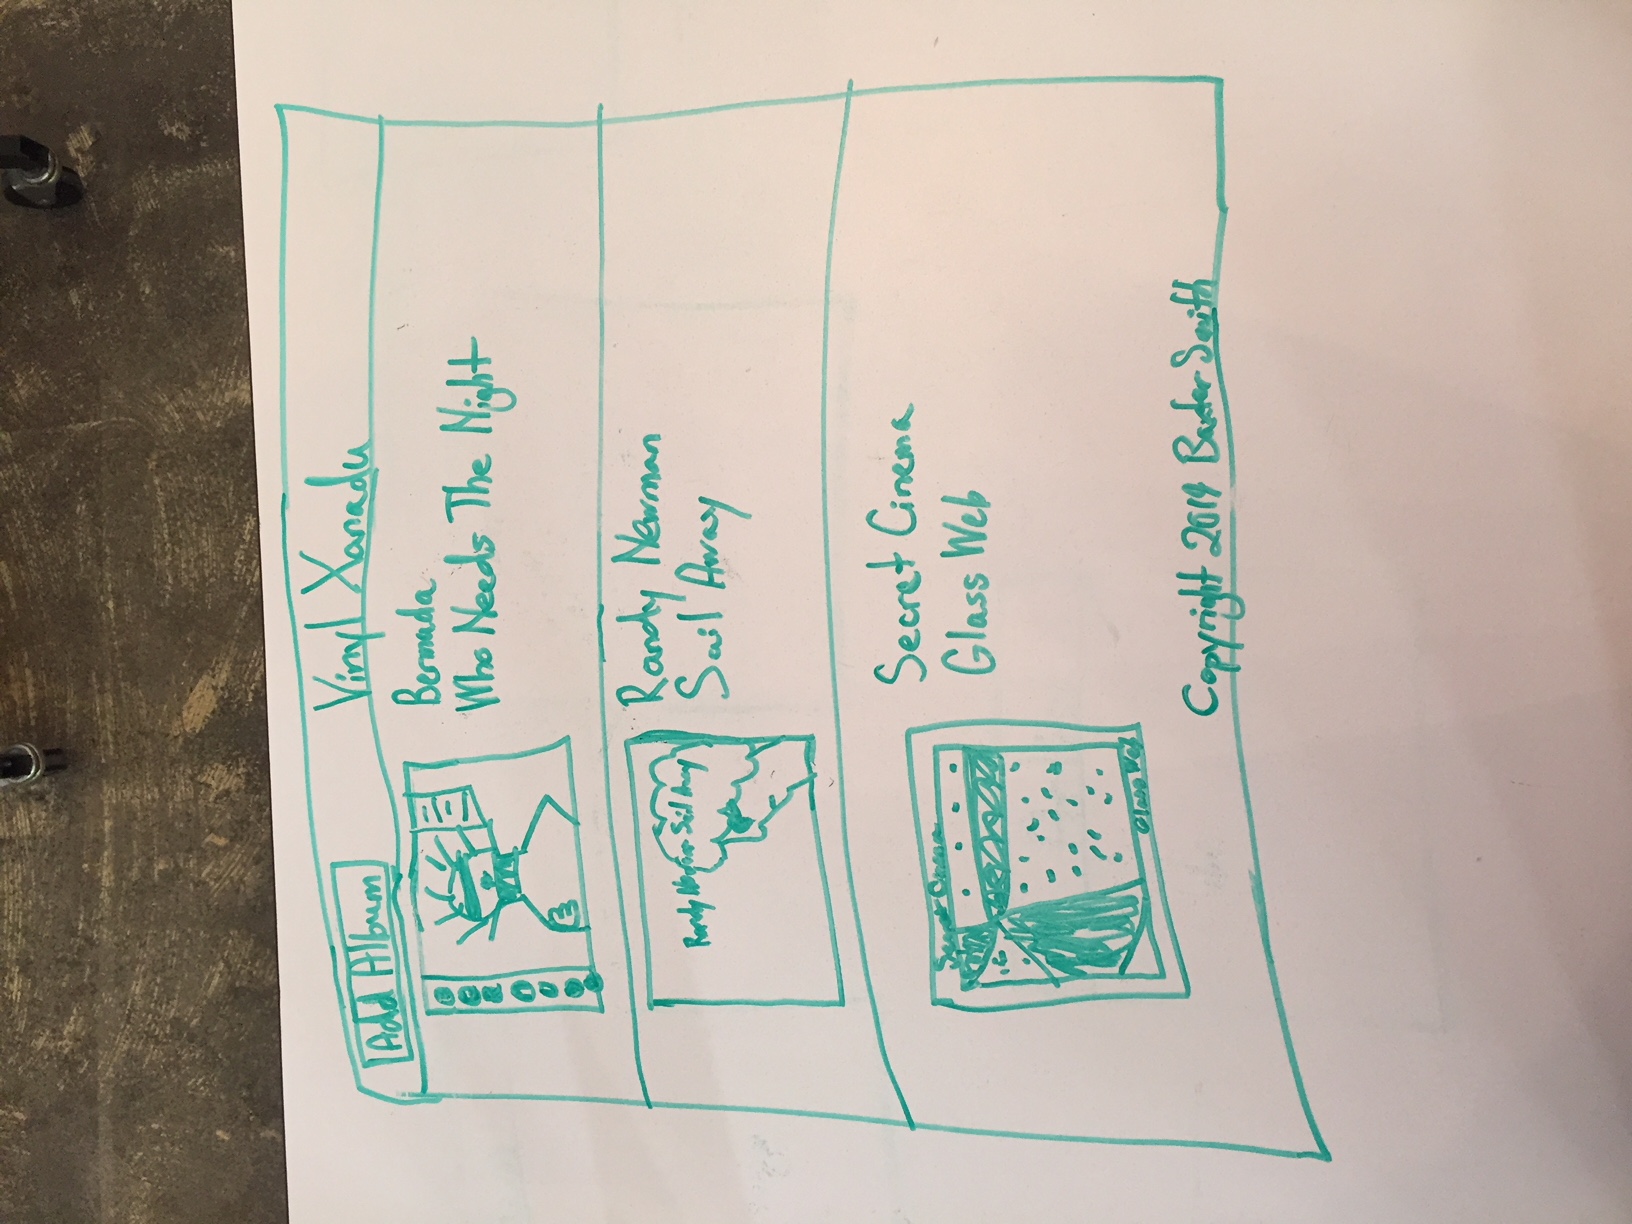 Vinyl Xanadu
Add Album
Bermada
Who Needs The Night
BERMUDA
Randy Newman
Sail Away
Randy Newman Sail Away
Secret Cinema
Glass Web
Secret Cinema
Glass Web
Copyright 2019 Baxter Smith